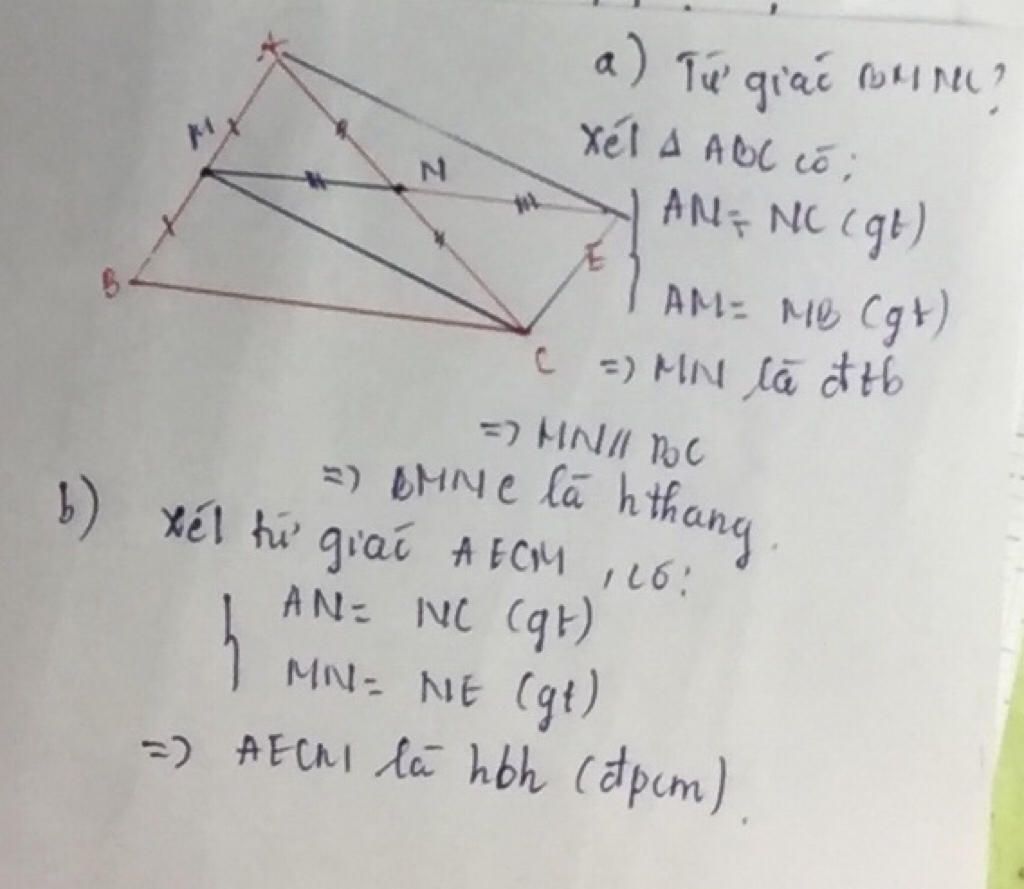 A
M
N
B
E
C
a) Tứ giác BMNC?
Xét Δ ABC có:
AN = NC (gt)
AM = MB (gt)
=> MN là đtb
=> MN // BC
=> BMNC là hthang.
b) Xét tứ giác AECM, có:
AN = NC (gt)
MN = NE (gt)
=> AECM là hbh (đpcm).